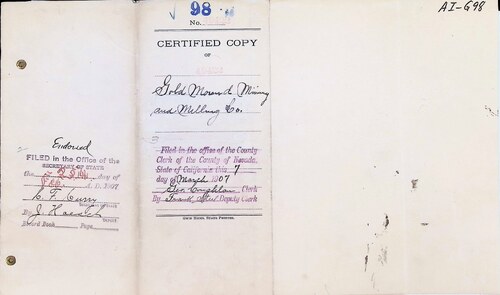 98
No.
AI-G98
CERTIFIED COPY
OF
Gold Mound Mining
and Milling Co.
Filed in the office of the County
Clerk of the County of Nevada,
State of California this 7
day of March 1907
Geo. Clerk
By Deputy Clerk
Endorsed
FILED in the Office of the
SECRETARY OF STATE
the day of
A. D. 1907
C. F. Curry
By J. Hoesch
Record Book Page